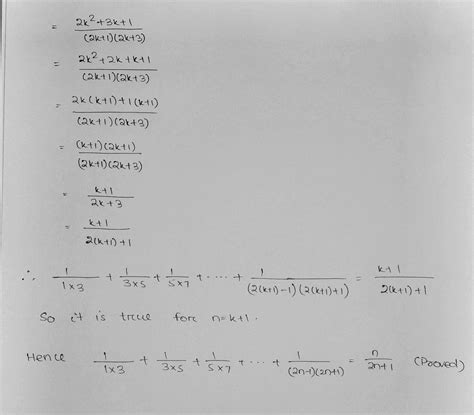 = (2k²+3k+1)/((2k+1)(2k+3))
= (2k²+2k+k+1)/((2k+1)(2k+3))
= (2k(k+1)+1(k+1))/((2k+1)(2k+3))
= ((k+1)(2k+1))/((2k+1)(2k+3))
= (k+1)/(2k+3)
= (k+1)/(2(k+1)+1)
∴ 1/(1×3) + 1/(3×5) + 1/(5×7) + ..... + 1/((2(k+1)-1)(2(k+1)+1)) = (k+1)/(2(k+1)+1)
So it is true for n=k+1.
Hence 1/(1×3) + 1/(3×5) + 1/(5×7) + ... + 1/((2n-1)(2n+1)) = n/(2n+1) (Proved)